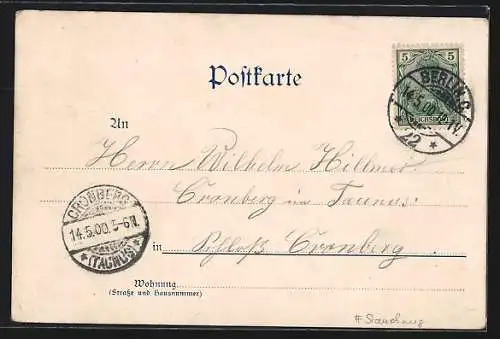 5 5
Postkarte
BERLIN. C.
14.5.00
22
An
Herrn Wilhelm Hillmer
CRONBERG
Cronberg im Taunus.
14.5.00. 5-6N.
(TAUNUS)
in Schloß Cronberg
Wohnung
(Straße und Hausnummer)